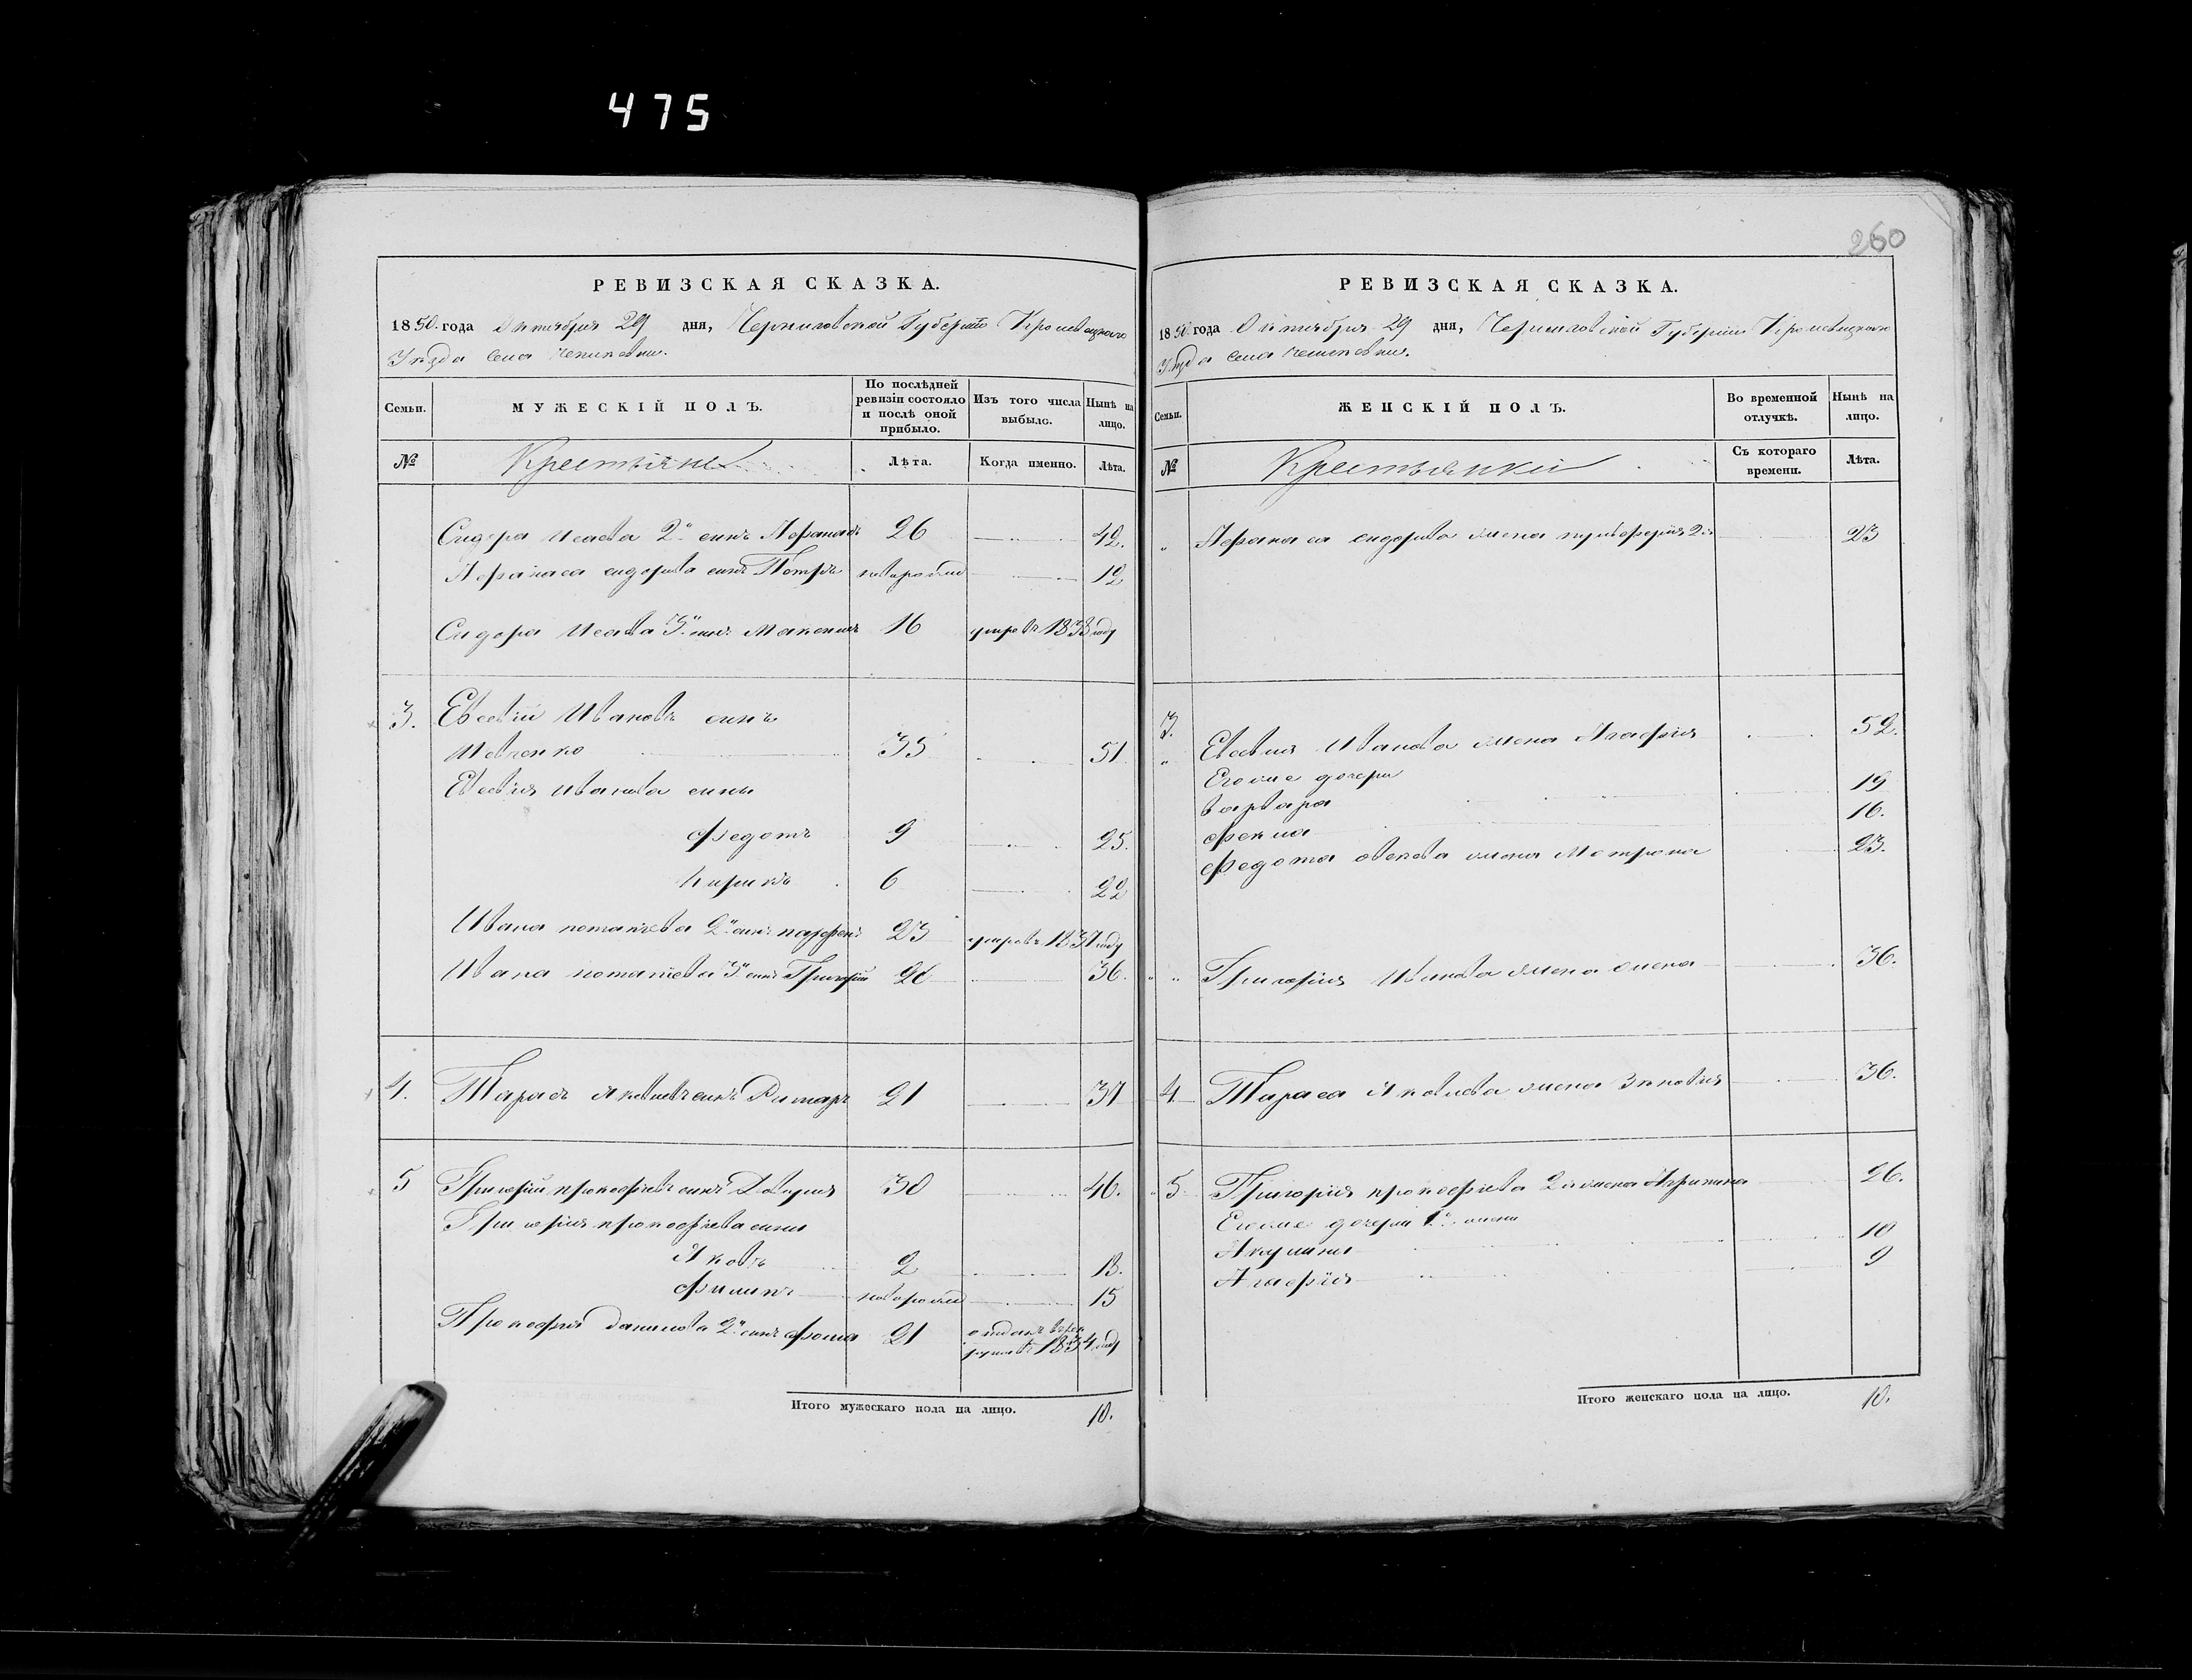 475
260
РЕВИЗСКАЯ СКАЗКА.
1850. года Октября 29 дня, Черниговской Губерніи Кролевецкаго
Уѣзда села
Семьи.
МУЖЕСКІЙ ПОЛЪ.
По послѣдней ревизіи состояло и послѣ оной прибыло.
Изъ того числа выбыло.
Нынѣ на лицо.
№
Крестьяне
Лѣта.
Когда именно.
Лѣта.
Сидора Исаева 2й сынъ Афанасъ 26 42.
Афанаса сидорова сынъ Петръ новорожд 12
Сидора Исаева 3й сынъ Максимъ 16 умре въ 1838 году
3. Евсевій Ивановъ сынъ
Ивченко 35 51
Евсевія Иванова сыны
Федотъ 9 25.
Кирикъ 6 22
Ивана потапьева 2й сынъ 23 умре въ 1837 году
Ивана потапіева 3й сынъ Григорій 20 36.
4. Тарасъ Яковлевъ сынъ Римаръ 21 37
5 Григорій прокофьевъ сынъ 30 46.
Григорія прокофьева сыны
Яковъ 2 18.
Филипъ новорожд 15
Прокофія данилова 2й сынъ Фома 21 отданъ в рек
руты въ 1834 году
Итого мужескаго пола на лицо. 10.
РЕВИЗСКАЯ СКАЗКА.
1850 года Октября 29 дня, Черниговской Губерніи Кролевецкаго
Уѣзда села
Семьи.
ЖЕНСКІЙ ПОЛЪ.
Во временной отлучкѣ.
Нынѣ на лицо.
№
Крестьянки
Съ котораго времени.
Лѣта.
Афанаса сидорова жена пульхерія 2я 23
3. Евсевія Иванова жена Агафія 52.
Егоже дочери
варвара 19
Фекла 16.
Федота жена Матрона 23.
Григорія Иванова жена 36.
4 Тараса Яковлева жена Зиновія 36.
5 Григорія прокофіева 2я жена 26.
Егоже дочери 1й жены
Акулина 10
Агафія 9
Итого женскаго пола на лицо. 10.